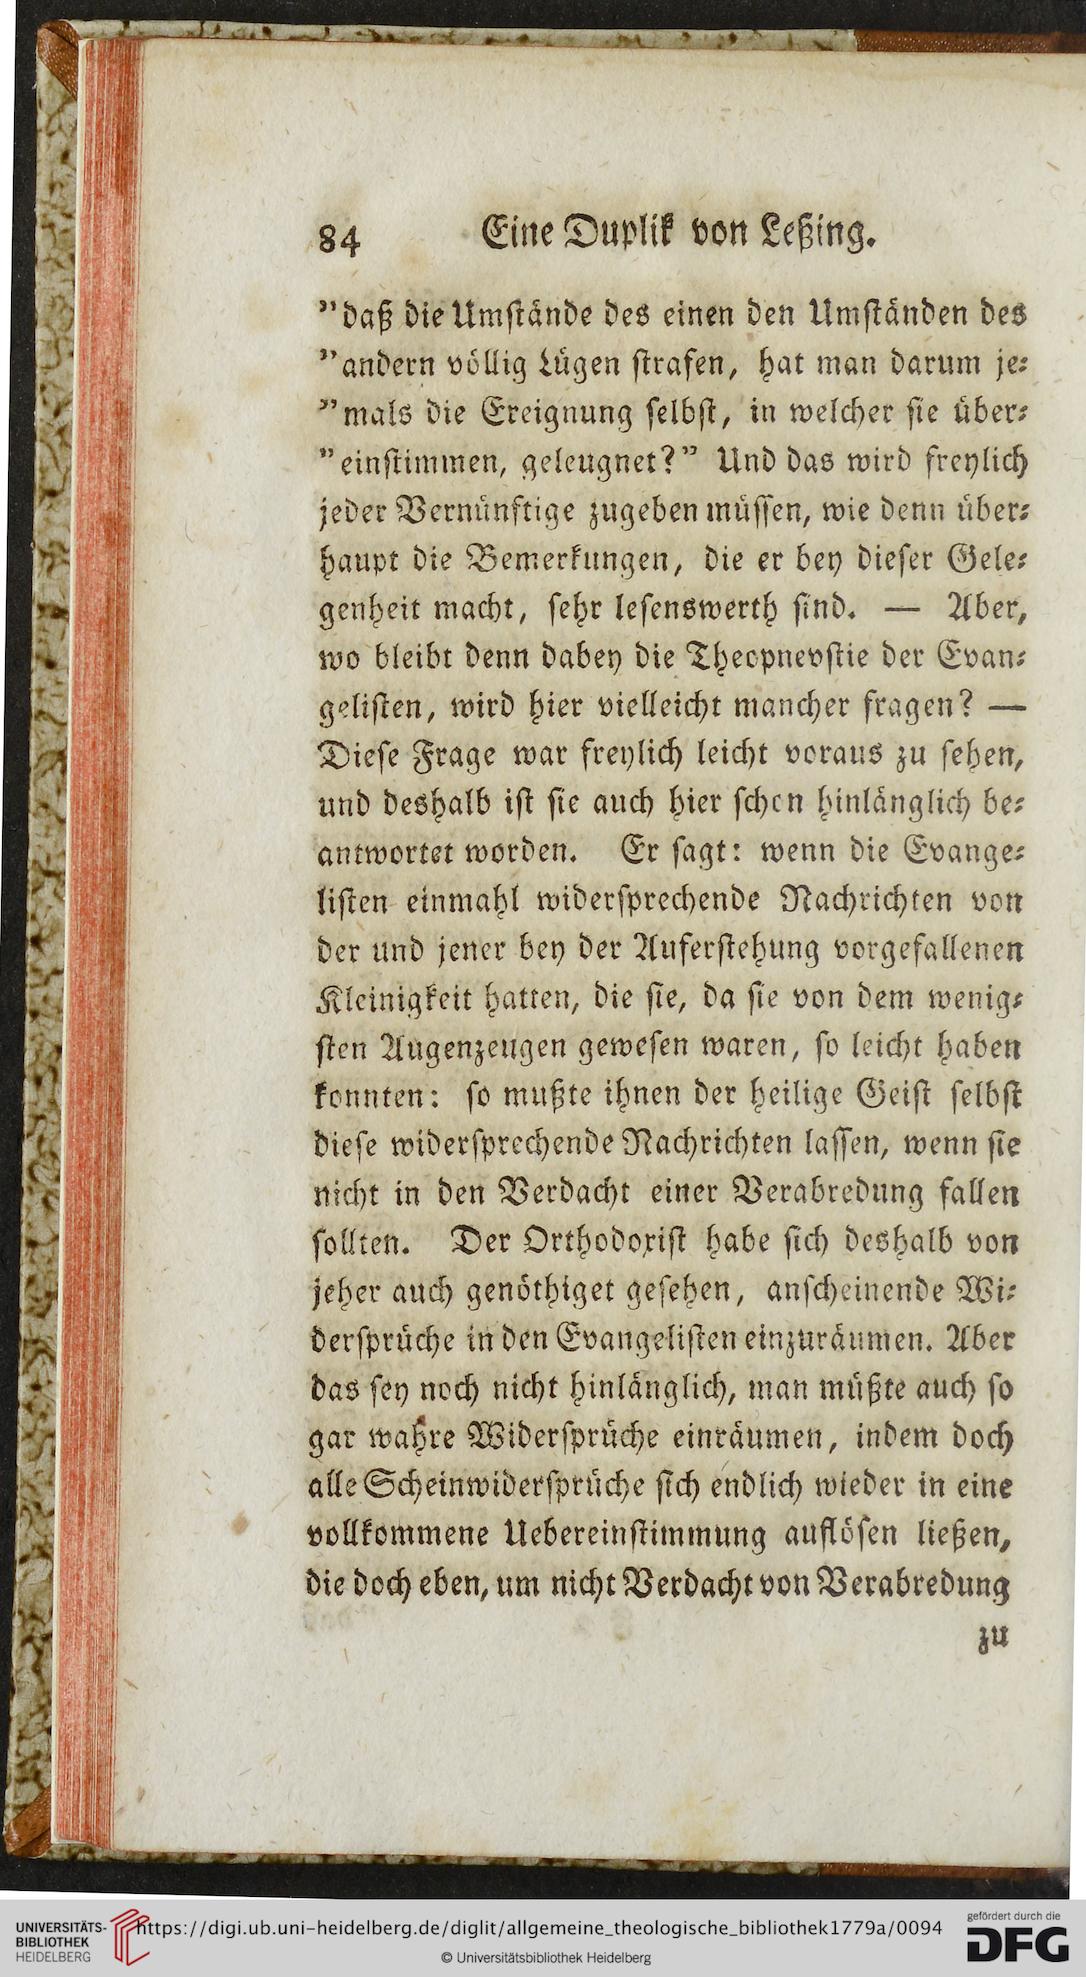 84 Eine Duplik von Leßing.
"daß die Umstände des einen den Umständen des
"andern völlig Lügen strafen, hat man darum je-
"mals die Ereignung selbst, in welcher sie über-
"einstimmen, geleugnet?" Und das wird freylich
jeder Vernünftige zugeben müssen, wie denn über-
haupt die Bemerkungen, die er bey dieser Gele-
genheit macht, sehr lesenswerth sind. — Aber,
wo bleibt denn dabey die Theopnevstie der Evan-
gelisten, wird hier vielleicht mancher fragen? —
Diese Frage war freylich leicht voraus zu sehen,
und deshalb ist sie auch hier schon hinlänglich be-
antwortet worden. Er sagt: wenn die Evange-
listen einmahl widersprechende Nachrichten von
der und jener bey der Auferstehung vorgefallenen
Kleinigkeit hatten, die sie, da sie von dem wenig-
sten Augenzeugen gewesen waren, so leicht haben
konnten: so mußte ihnen der heilige Geist selbst
diese widersprechende Nachrichten lassen, wenn sie
nicht in den Verdacht einer Verabredung fallen
sollten. Der Orthodoxist habe sich deshalb von
jeher auch genöthiget gesehen, anscheinende Wi-
dersprüche in den Evangelisten einzuräumen. Aber
das sey noch nicht hinlänglich, man müßte auch so
gar wahre Widersprüche einräumen, indem doch
alle Scheinwidersprüche sich endlich wieder in eine
vollkommene Uebereinstimmung auflösen ließen,
die doch eben, um nicht Verdacht von Verabredung
zu
UNIVERSITÄTS-
BIBLIOTHEK
HEIDELBERG
https://digi.ub.uni-heidelberg.de/diglit/allgemeine_theologische_bibliothek1779a/0094
© Universitätsbibliothek Heidelberg
gefördert durch die
DFG